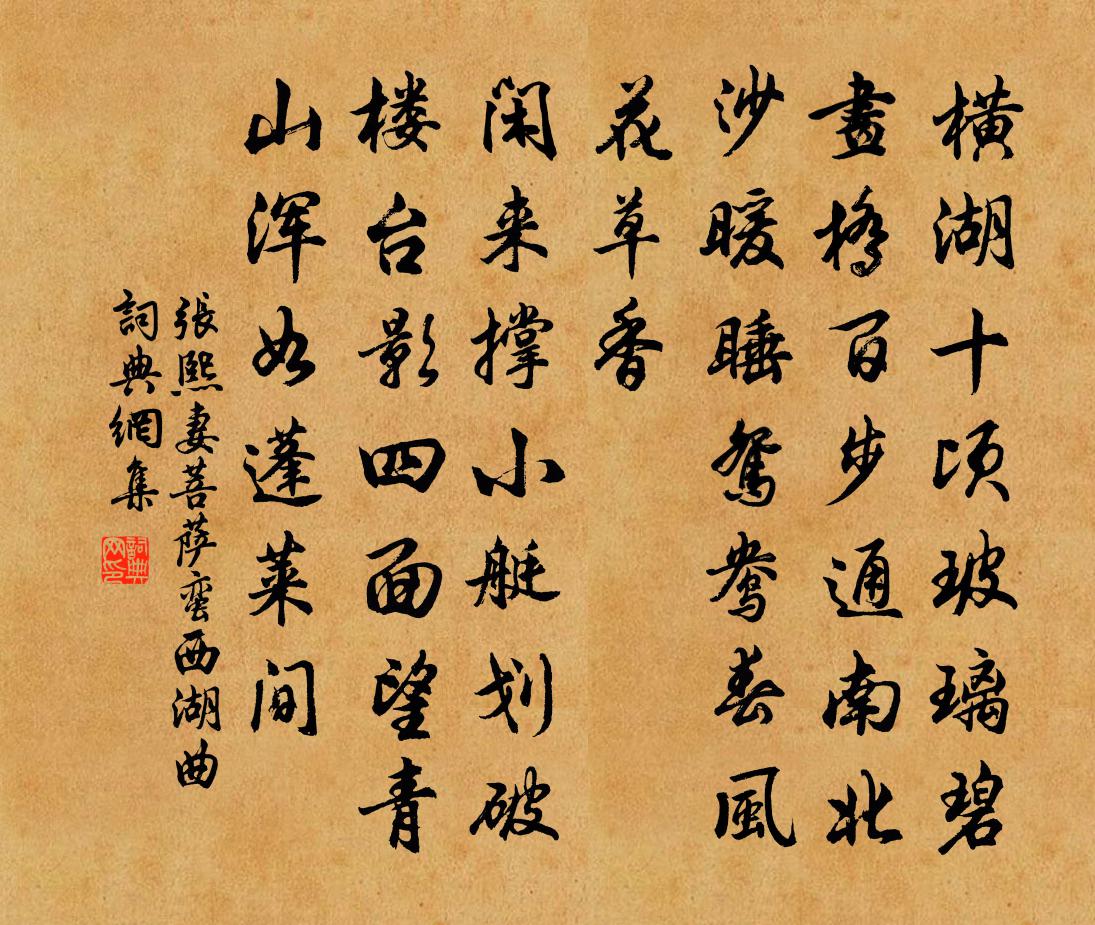 横湖十顷玻璃碧
畫橋百步通南北
沙暖睡鴛鴦春風
花草香
闲来撑小艇划破
楼台影四面望青
山浑如蓬莱间
張熙妻菩萨蛮西湖曲
詞典網集
詞典网印